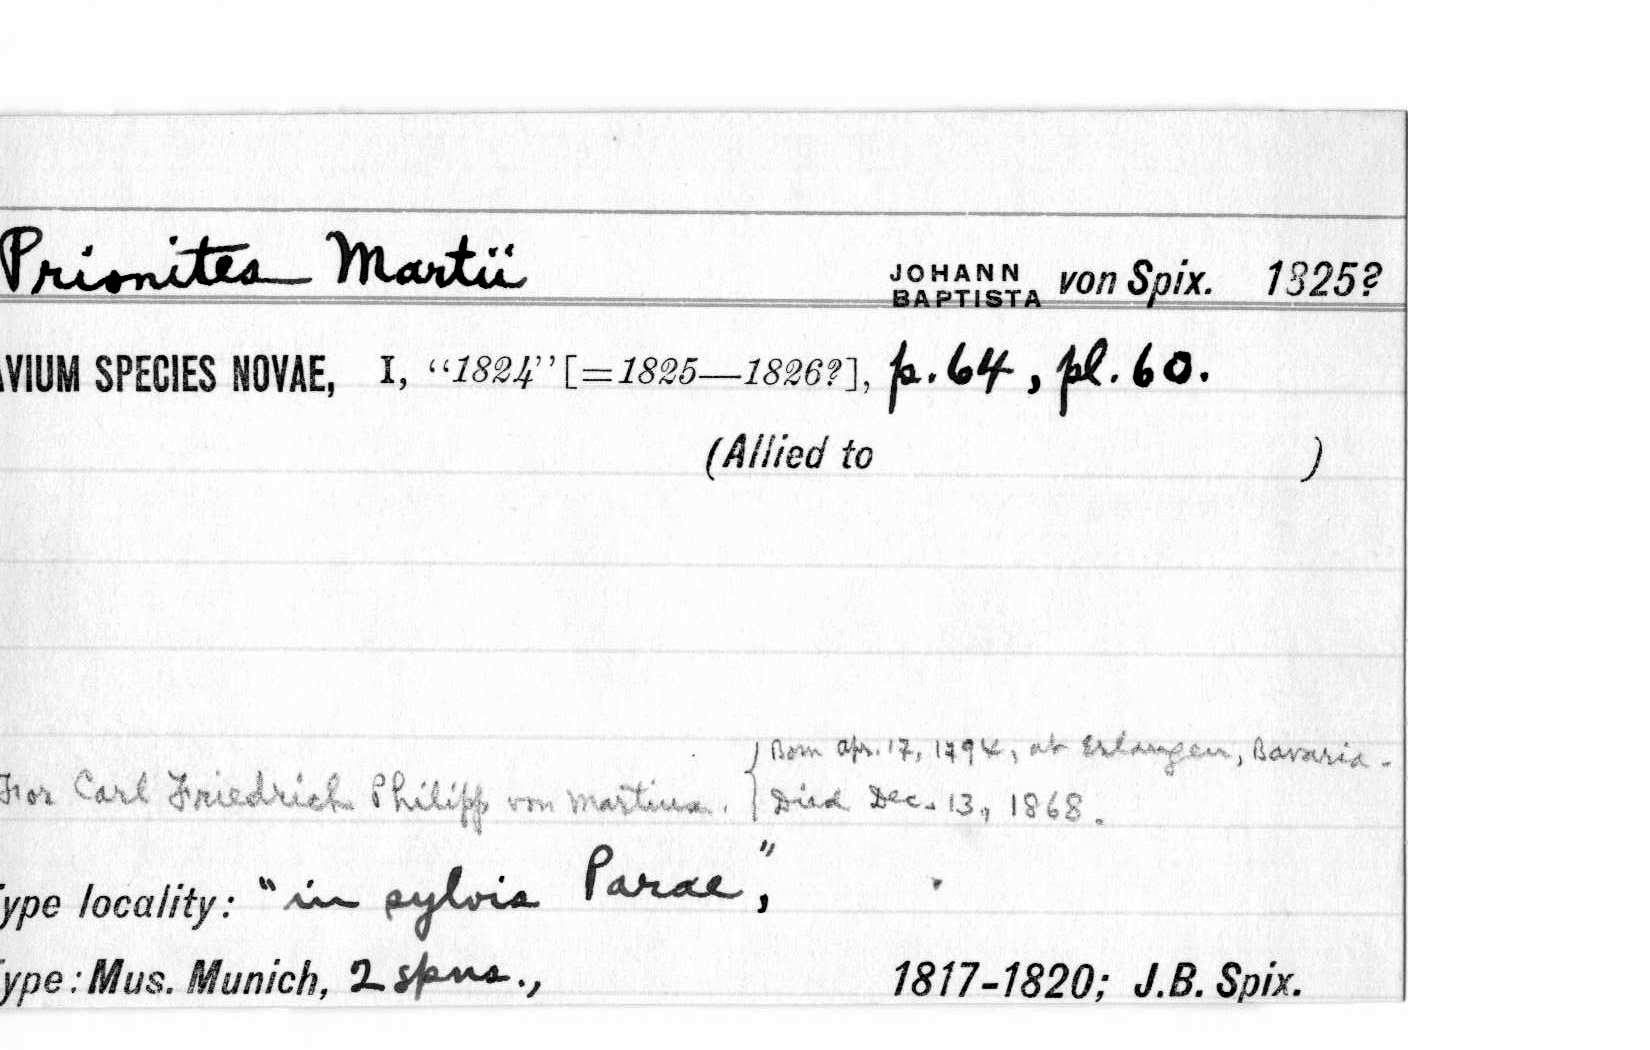 Prionites Martii JOHANN BAPTISTA von Spix. 1825?
AVIUM SPECIES NOVAE, I, “1824” [=1825—1826?], p. 64, pl. 60.
(Allied to )
Born Apr. 17, 1794, at Erlangen, Bavaria.
For Carl Friedrich Philipp von Martius. Died Dec. 13, 1868.
ype locality: “in sylvis Parae”,
ype: Mus. Munich, 2 spns., 1817-1820; J.B. Spix.